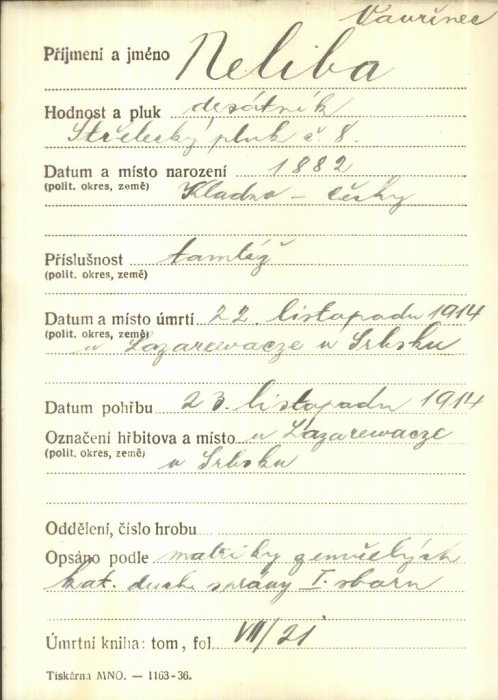 Vavřinec
Příjmení a jméno Neliba
Hodnost a pluk desátník
Střelecký pluk č. 8.
Datum a místo narození 1882
(polit. okres, země) Kladno – Čechy
Příslušnost tamtéž
(polit. okres, země)
Datum a místo úmrtí 22. listopadu 1914
(polit. okres, země) u Lazarewacze u Srbsku
Datum pohřbu 23. listopadu 1914
Označení hřbitova a místo u Lazarewacze
(polit. okres, země) u Srbsku
Oddělení, číslo hrobu
Opsáno podle matriky zemřelých
kat. duch. správy I. sboru
Úmrtní kniha: tom, fol. VII/21
Tiskárna MNO. — 1163-36.